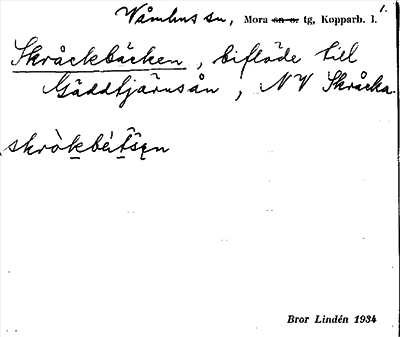 1.
Våmhus sn, Mora sn o. tg, Kopparb. l.
Skråckbäcken, biflöde till
Gäddtjärnsån, NV Skråcka.
skròkbèitsęn
Bror Lindén 1934